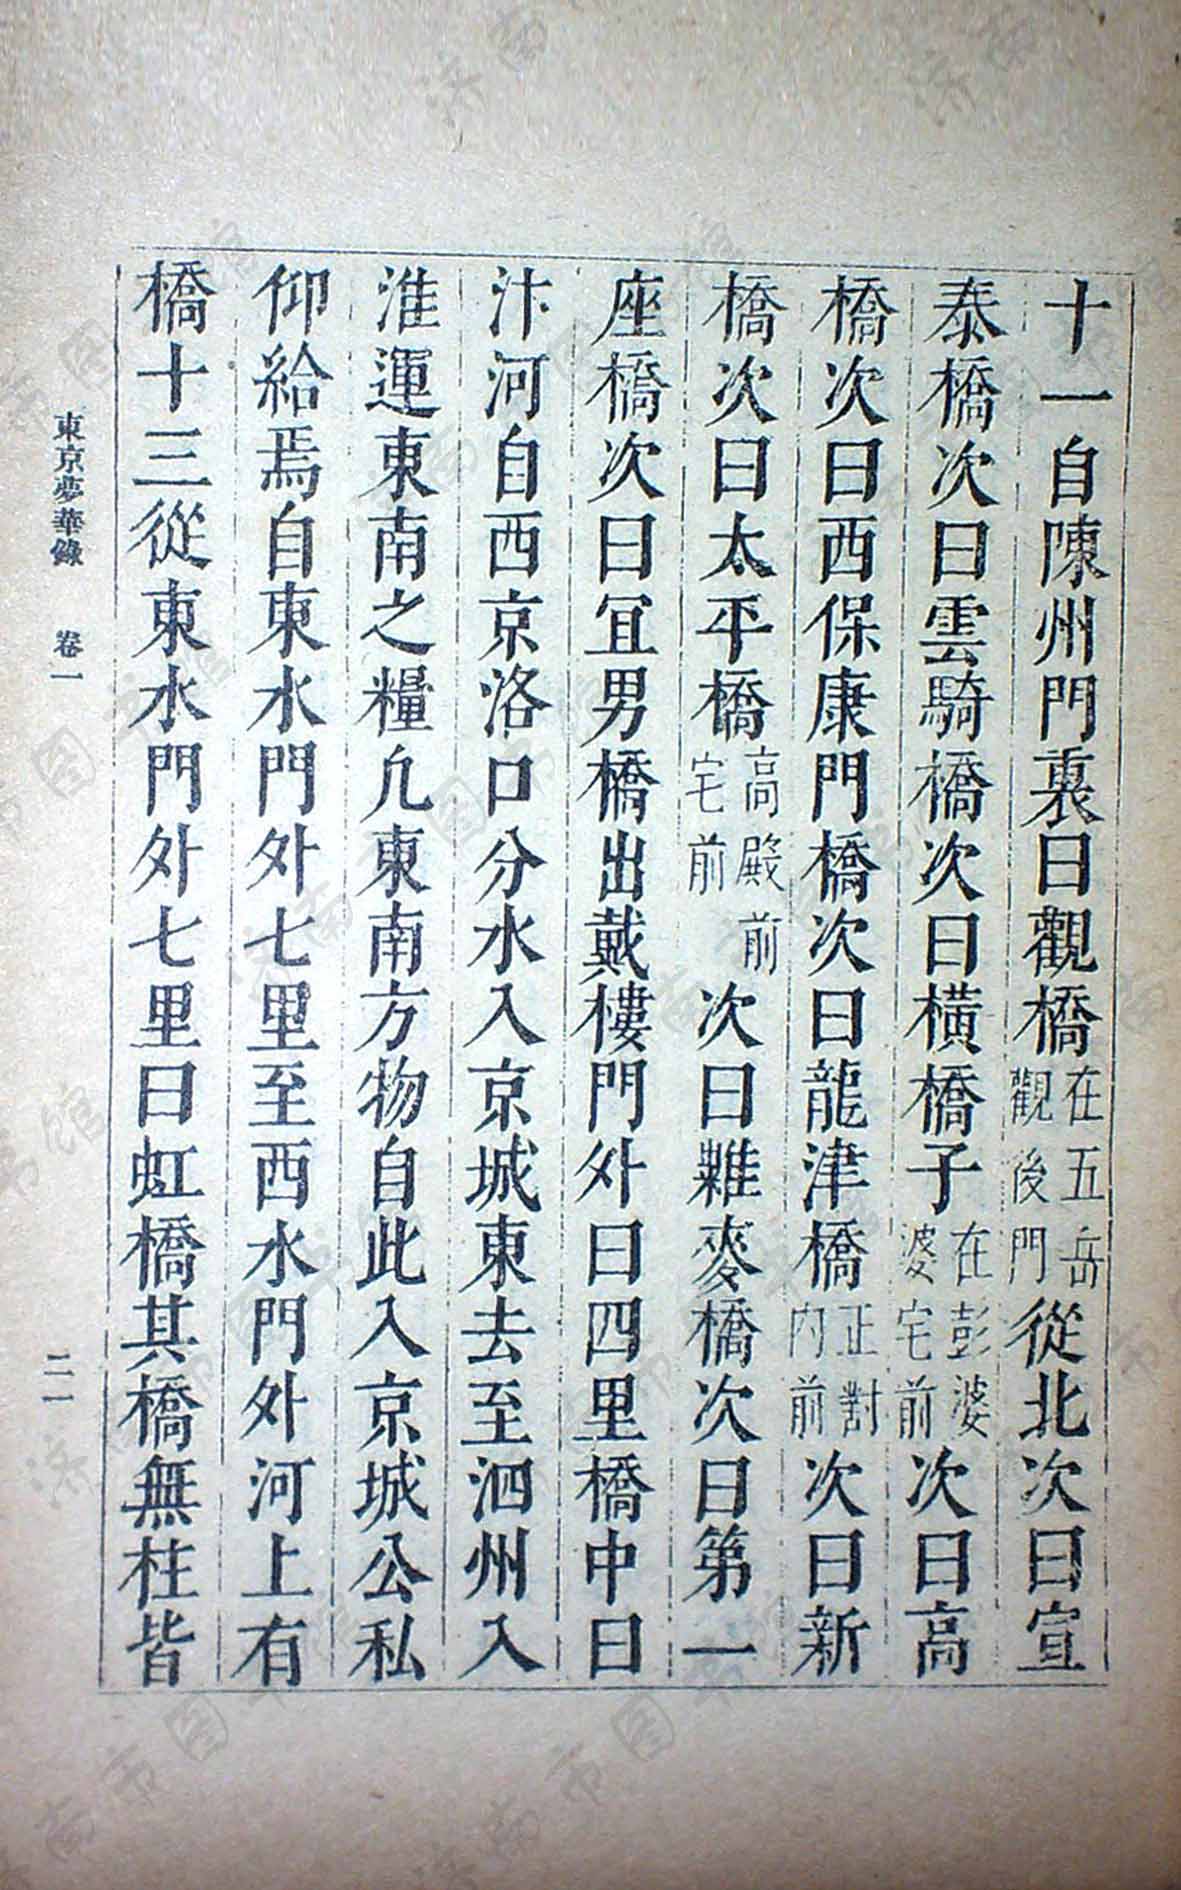 十一自陳州門裏曰觀橋在五岳觀後門從北次曰宣
泰橋次曰雲騎橋次曰橫橋子在彭婆婆宅前次曰高
橋次曰西保康門橋次曰龍津橋正對內前次曰新
橋次曰太平橋高殿前宅前次曰糶麥橋次曰第一
座橋次曰宜男橋出戴樓門外曰四里橋中曰
汴河自西京洛口分水入京城東去至泗州入
淮運東南之糧凢東南方物自此入京城公私
仰給焉自東水門外七里至西水門外河上有
橋十三從東水門外七里曰虹橋其橋無柱皆
東京夢華錄 卷一 二一
济南市图书馆